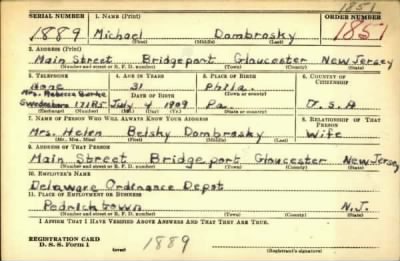 1851
SERIAL NUMBER 1. NAME (Print) ORDER NUMBER
1889 Michael Dombrosky 1851
(First) (Middle) (Last)
2. ADDRESS (Print)
Main Street Bridgeport Gloucester New Jersey
(Number and street or R. F. D. number) (Town) (County) (State)
3. TELEPHONE 4. AGE IN YEARS 5. PLACE OF BIRTH 6. COUNTRY OF CITIZENSHIP
None 31 Phila.
Mrs. Rebecca DATE OF BIRTH (Town or county)
Swedesboro 171R5 July 4 1909 Pa. U.S.A
(Exchange) (Number) (Mo.) (Day) (Yr.) (State or country)
7. NAME OF PERSON WHO WILL ALWAYS KNOW YOUR ADDRESS 8. RELATIONSHIP OF THAT PERSON
Mrs. Helen Belsky Dombrosky Wife
(Mr., Mrs., Miss) (First) (Middle) (Last)
9. ADDRESS OF THAT PERSON
Main Street Bridgeport Gloucester New Jersey
(Number and street or R. F. D. number) (Town) (County) (State)
10. EMPLOYER'S NAME
Delaware Ordinance Depot
11. PLACE OF EMPLOYMENT OR BUSINESS
Pedricktown N.J.
(Number and street or R. F. D. number) (Town) (County) (State)
I AFFIRM THAT I HAVE VERIFIED ABOVE ANSWERS AND THAT THEY ARE TRUE.
REGISTRATION CARD
D. S. S. Form 1 (over) 1889 (Registrant's signature)